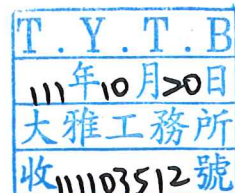 T.Y.T.B
111年10月20日
大雅工務所
收111103512號